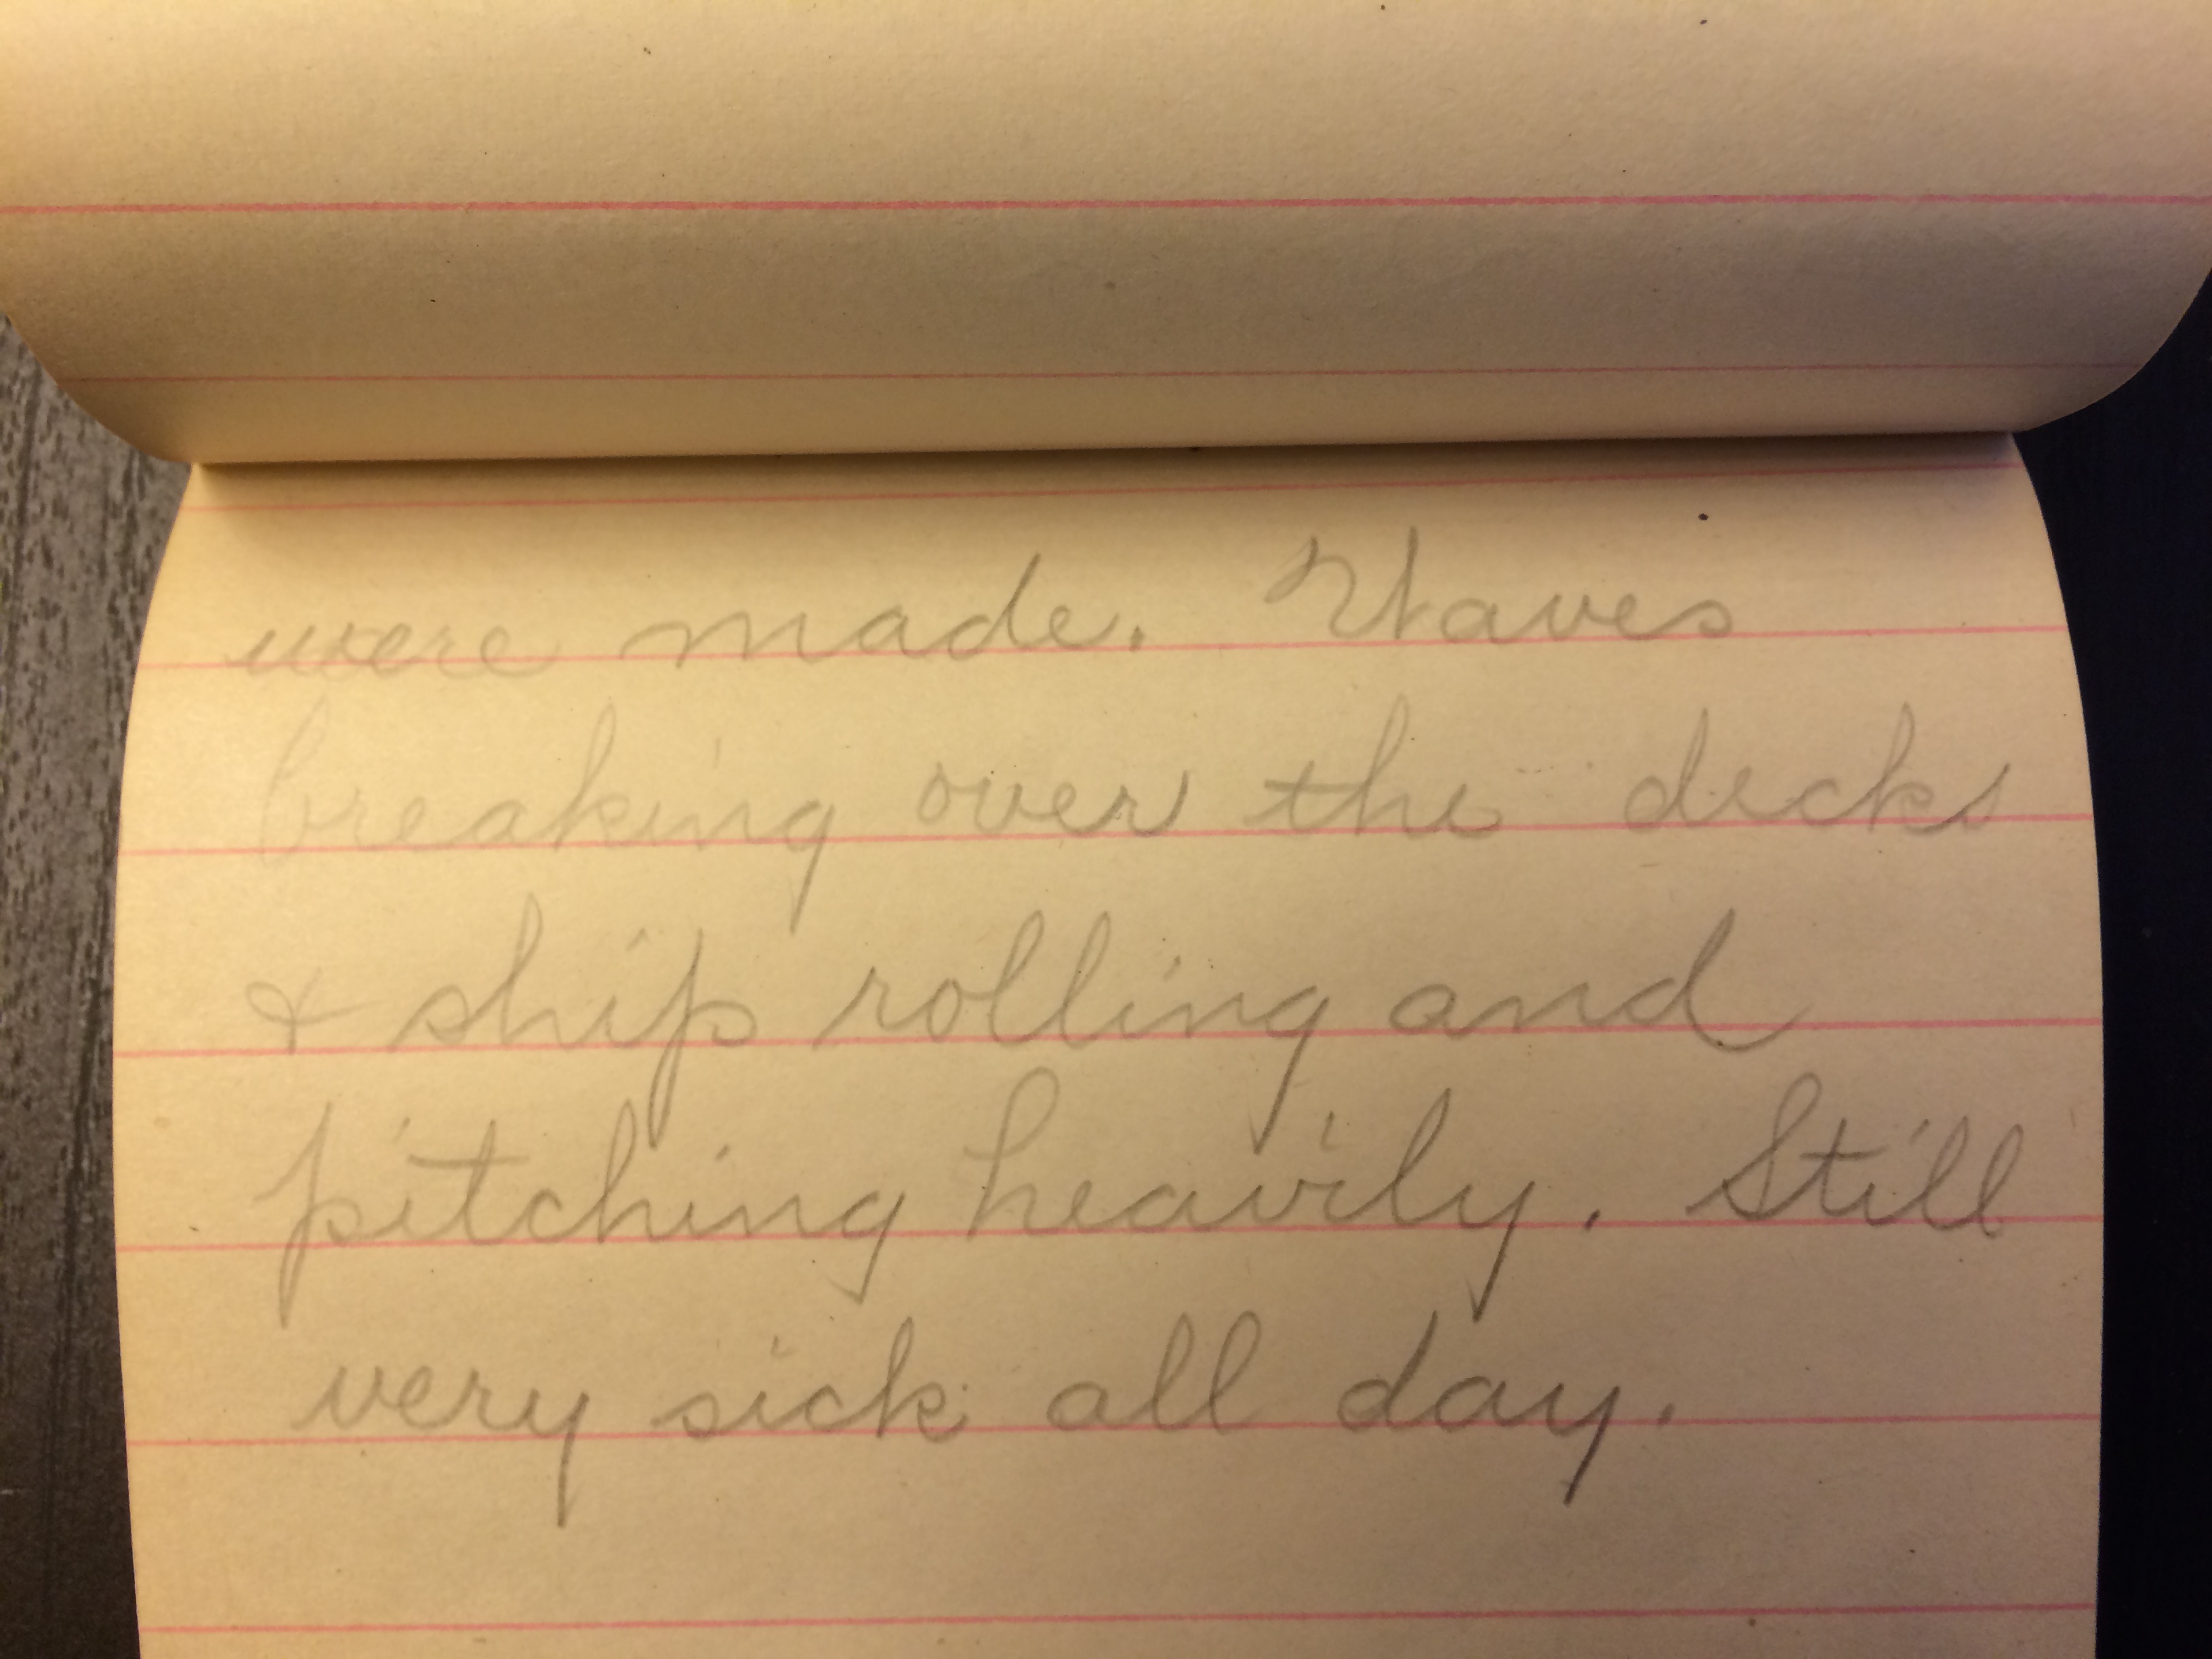 were made. Waves
breaking over the decks
& ship rolling and
pitching heavily. Still
very sick all day.